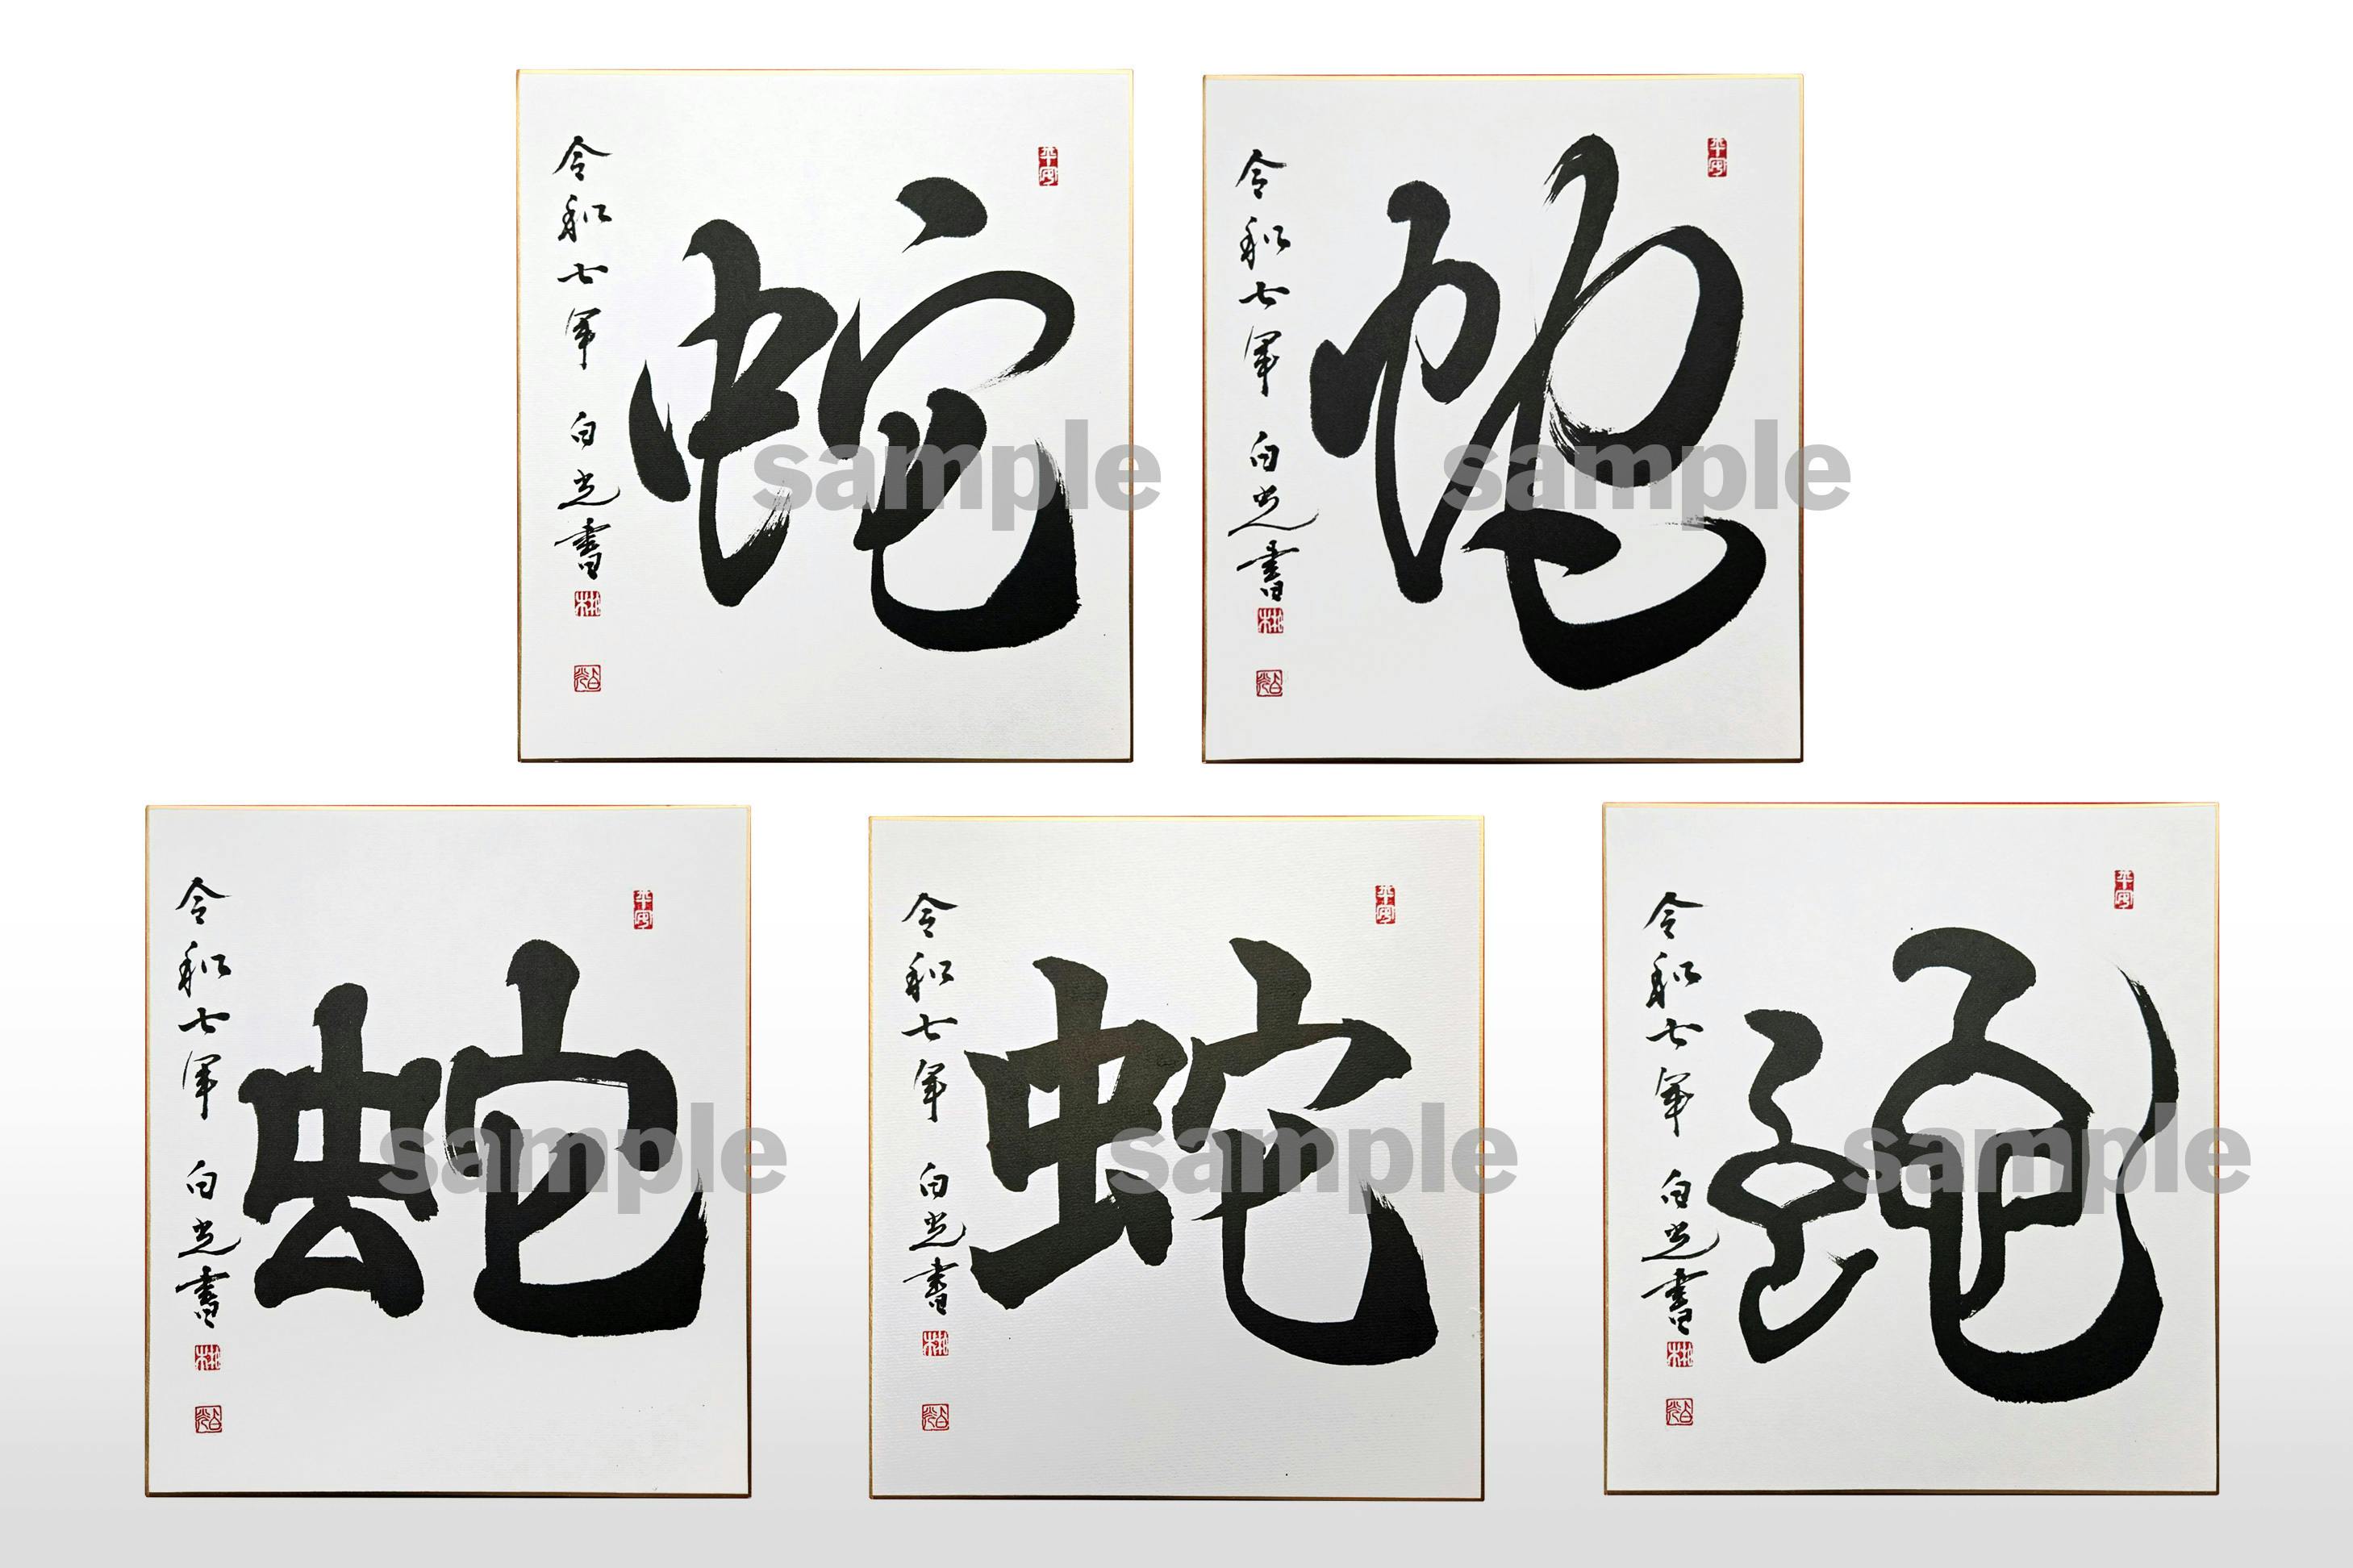 蛇
令和七年 白光書
平安
sample
蛇
令和七年 白光書
平安
sample
蛇
令和七年 白光書
平安
sample
蛇
令和七年 白光書
平安
sample
蛇
令和七年 白光書
平安
sample